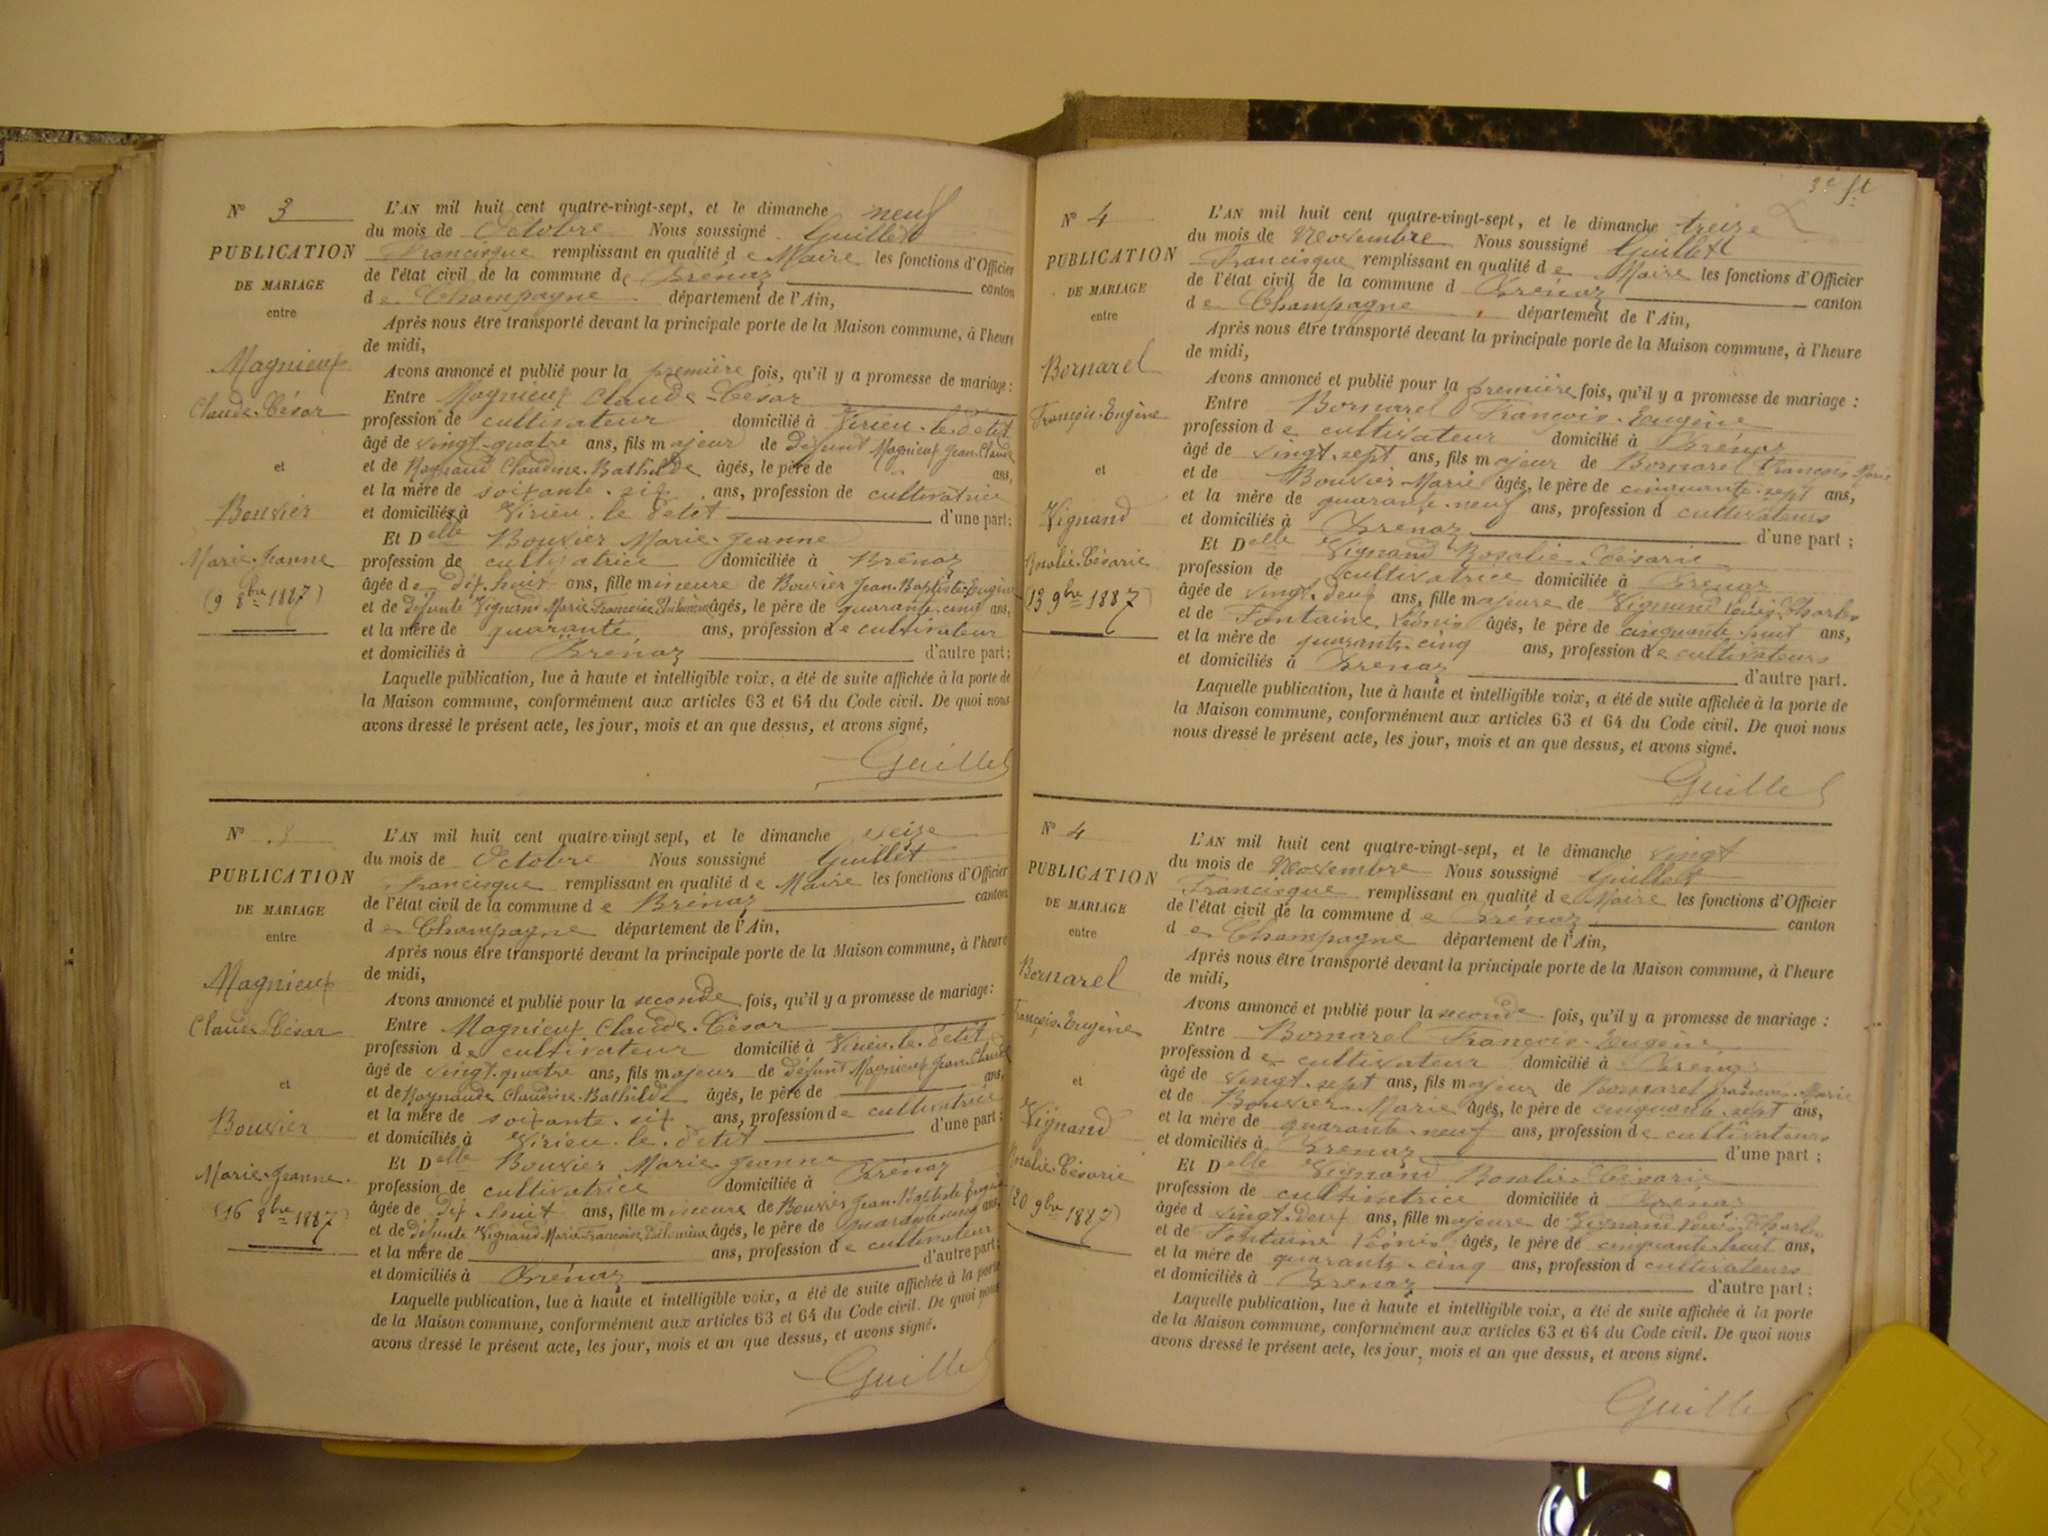 N° 3
PUBLICATION
DE MARIAGE
entre
Magnieux
Claude-César
et
Bouvier
Marie-Jeanne
(9 8bre 1887)
L'AN mil huit cent quatre-vingt-sept, et le dimanche neuf
du mois de Octobre Nous soussigné Guillet
Francisque remplissant en qualité de Maire les fonctions d'Officier
de l'état civil de la commune de Brénaz canton
de Champagne département de l'Ain,
Après nous être transporté devant la principale porte de la Maison commune, à l'heure
de midi,
Avons annoncé et publié pour la première fois, qu'il y a promesse de mariage :
Entre Magnieux Claude-César
profession de cultivateur domicilié à Virieu-le-Petit
âgé de vingt-quatre ans, fils majeur de défunt Magnieux Jean-Claude
et de Claudine-Bathilde âgés, le père de ans,
et la mère de soixante-six ans, profession de cultivatrice
et domiciliés à Virieu-le-Petit d'une part;
Et Delle Bouvier Marie-Jeanne
profession de cultivatrice domiciliée à Brénaz
âgée de dix-huit ans, fille mineure de Bouvier Jean-Baptiste-Eugène
et de défunte Vignand Marie-Françoise âgés, le père de quarante-cinq ans,
et la mère de quarante ans, profession de cultivateur
et domiciliés à Brénaz d'autre part;
Laquelle publication, lue à haute et intelligible voix, a été de suite affichée à la porte de
la Maison commune, conformément aux articles 63 et 64 du Code civil. De quoi nous
avons dressé le présent acte, les jour, mois et an que dessus, et avons signé,
Guillet
N° 3
PUBLICATION
DE MARIAGE
entre
Magnieux
Claude-César
et
Bouvier
Marie-Jeanne.
(16 8bre 1887)
L'AN mil huit cent quatre-vingt sept, et le dimanche seize
du mois de Octobre Nous soussigné Guillet
Francisque remplissant en qualité de Maire les fonctions d'Officier
de l'état civil de la commune de Brénaz canton
de Champagne département de l'Ain,
Après nous être transporté devant la principale porte de la Maison commune, à l'heure
de midi,
Avons annoncé et publié pour la seconde fois, qu'il y a promesse de mariage:
Entre Magnieux Claude-César
profession de cultivateur domicilié à Virieu-le-Petit
âgé de vingt-quatre ans, fils majeur de défunt Magnieux Jean-Claude
et de Claudine-Bathilde âgés, le père de ans,
et la mère de soixante-six ans, profession de cultivatrice
et domiciliés à Virieu-le-Petit d'une part;
Et Delle Bouvier Marie-Jeanne
profession de cultivatrice domiciliée à Brénaz
âgée de dix-huit ans, fille mineure de Bouvier Jean-Baptiste Eugène
et de défunte Vignand Marie-Françoise âgés, le père de quarante-cinq ans,
et la mère de ans, profession de cultivateur
et domiciliés à Brénaz d'autre part;
Laquelle publication, lue à haute et intelligible voix, a été de suite affichée à la porte
de la Maison commune, conformément aux articles 63 et 64 du Code civil. De quoi nous
avons dressé le présent acte, les jour, mois et an que dessus, et avons signé.
Guillet
3e ft
N° 4
PUBLICATION
DE MARIAGE
entre
Bornarel
François-Eugène
et
Vignand
Rosalie-Césarie
(13 9bre 1887)
L'AN mil huit cent quatre-vingt-sept, et le dimanche treize
du mois de Novembre Nous soussigné Guillet
Francisque remplissant en qualité de Maire les fonctions d'Officier
de l'état civil de la commune d Brénaz canton
de Champagne département de l'Ain,
Après nous être transporté devant la principale porte de la Maison commune, à l'heure
de midi,
Avons annoncé et publié pour la première fois, qu'il y a promesse de mariage :
Entre Bornarel François-Eugène
profession de cultivateur domicilié à Brénaz
âgé de vingt-sept ans, fils majeur de Bornarel François Marie
et de Bouvier-Marie âgés, le père de cinquante-sept ans,
et la mère de quarante-neuf ans, profession d cultivateurs
et domiciliés à Brenaz d'une part ;
Et Delle Vignand Rosalie-Césarie
profession de cultivatrice domiciliée à Brenaz
âgée de vingt-deux ans, fille majeure de Vignand Louis-Charles
et de Fontaine Léonie âgés, le père de cinquante-huit ans,
et la mère de quarante-cinq ans, profession de cultivateurs
et domiciliés à Brenaz d'autre part.
Laquelle publication, lue à haute et intelligible voix, a été de suite affichée à la porte de
la Maison commune, conformément aux articles 63 et 64 du Code civil. De quoi nous
nous dressé le présent acte, les jour, mois et an que dessus, et avons signé.
Guillet
N° 4
PUBLICATION
DE MARIAGE
entre
Bornarel
François-Eugène
et
Vignand
Rosalie-Césarie
(20 9bre 1887)
L'AN mil huit cent quatre-vingt-sept, et le dimanche vingt
du mois de Novembre Nous soussigné Guillet
Francisque remplissant en qualité de Maire les fonctions d'Officier
de l'état civil de la commune de Brénaz canton
de Champagne département de l'Ain,
Après nous être transporté devant la principale porte de la Maison commune, à l'heure
de midi,
Avons annoncé et publié pour la seconde fois, qu'il y a promesse de mariage :
Entre Bornarel François-Eugène
profession de cultivateur domicilié à Brénaz
âgé de vingt-sept ans, fils majeur de Bornarel François-Marie
et de Bouvier-Marie âgés, le père de cinquante-sept ans,
et la mère de quarante-neuf ans, profession de cultivateurs
et domiciliés à Brenaz d'une part ;
Et Delle Vignand Rosalie-Césarie
profession de cultivatrice domiciliée à Brenaz
âgée d vingt-deux ans, fille majeure de Vignand Louis-Charles
et de Fontaine Léonie âgés, le père de cinquante-huit ans,
et la mère de quarante-cinq ans, profession d cultivateurs
et domiciliés à Brenaz d'autre part ;
Laquelle publication, lue à haute et intelligible voix, a été de suite affichée à la porte
de la Maison commune, conformément aux articles 63 et 64 du Code civil. De quoi nous
avons dressé le présent acte, les jour, mois et an que dessus, et avons signé.
Guillet